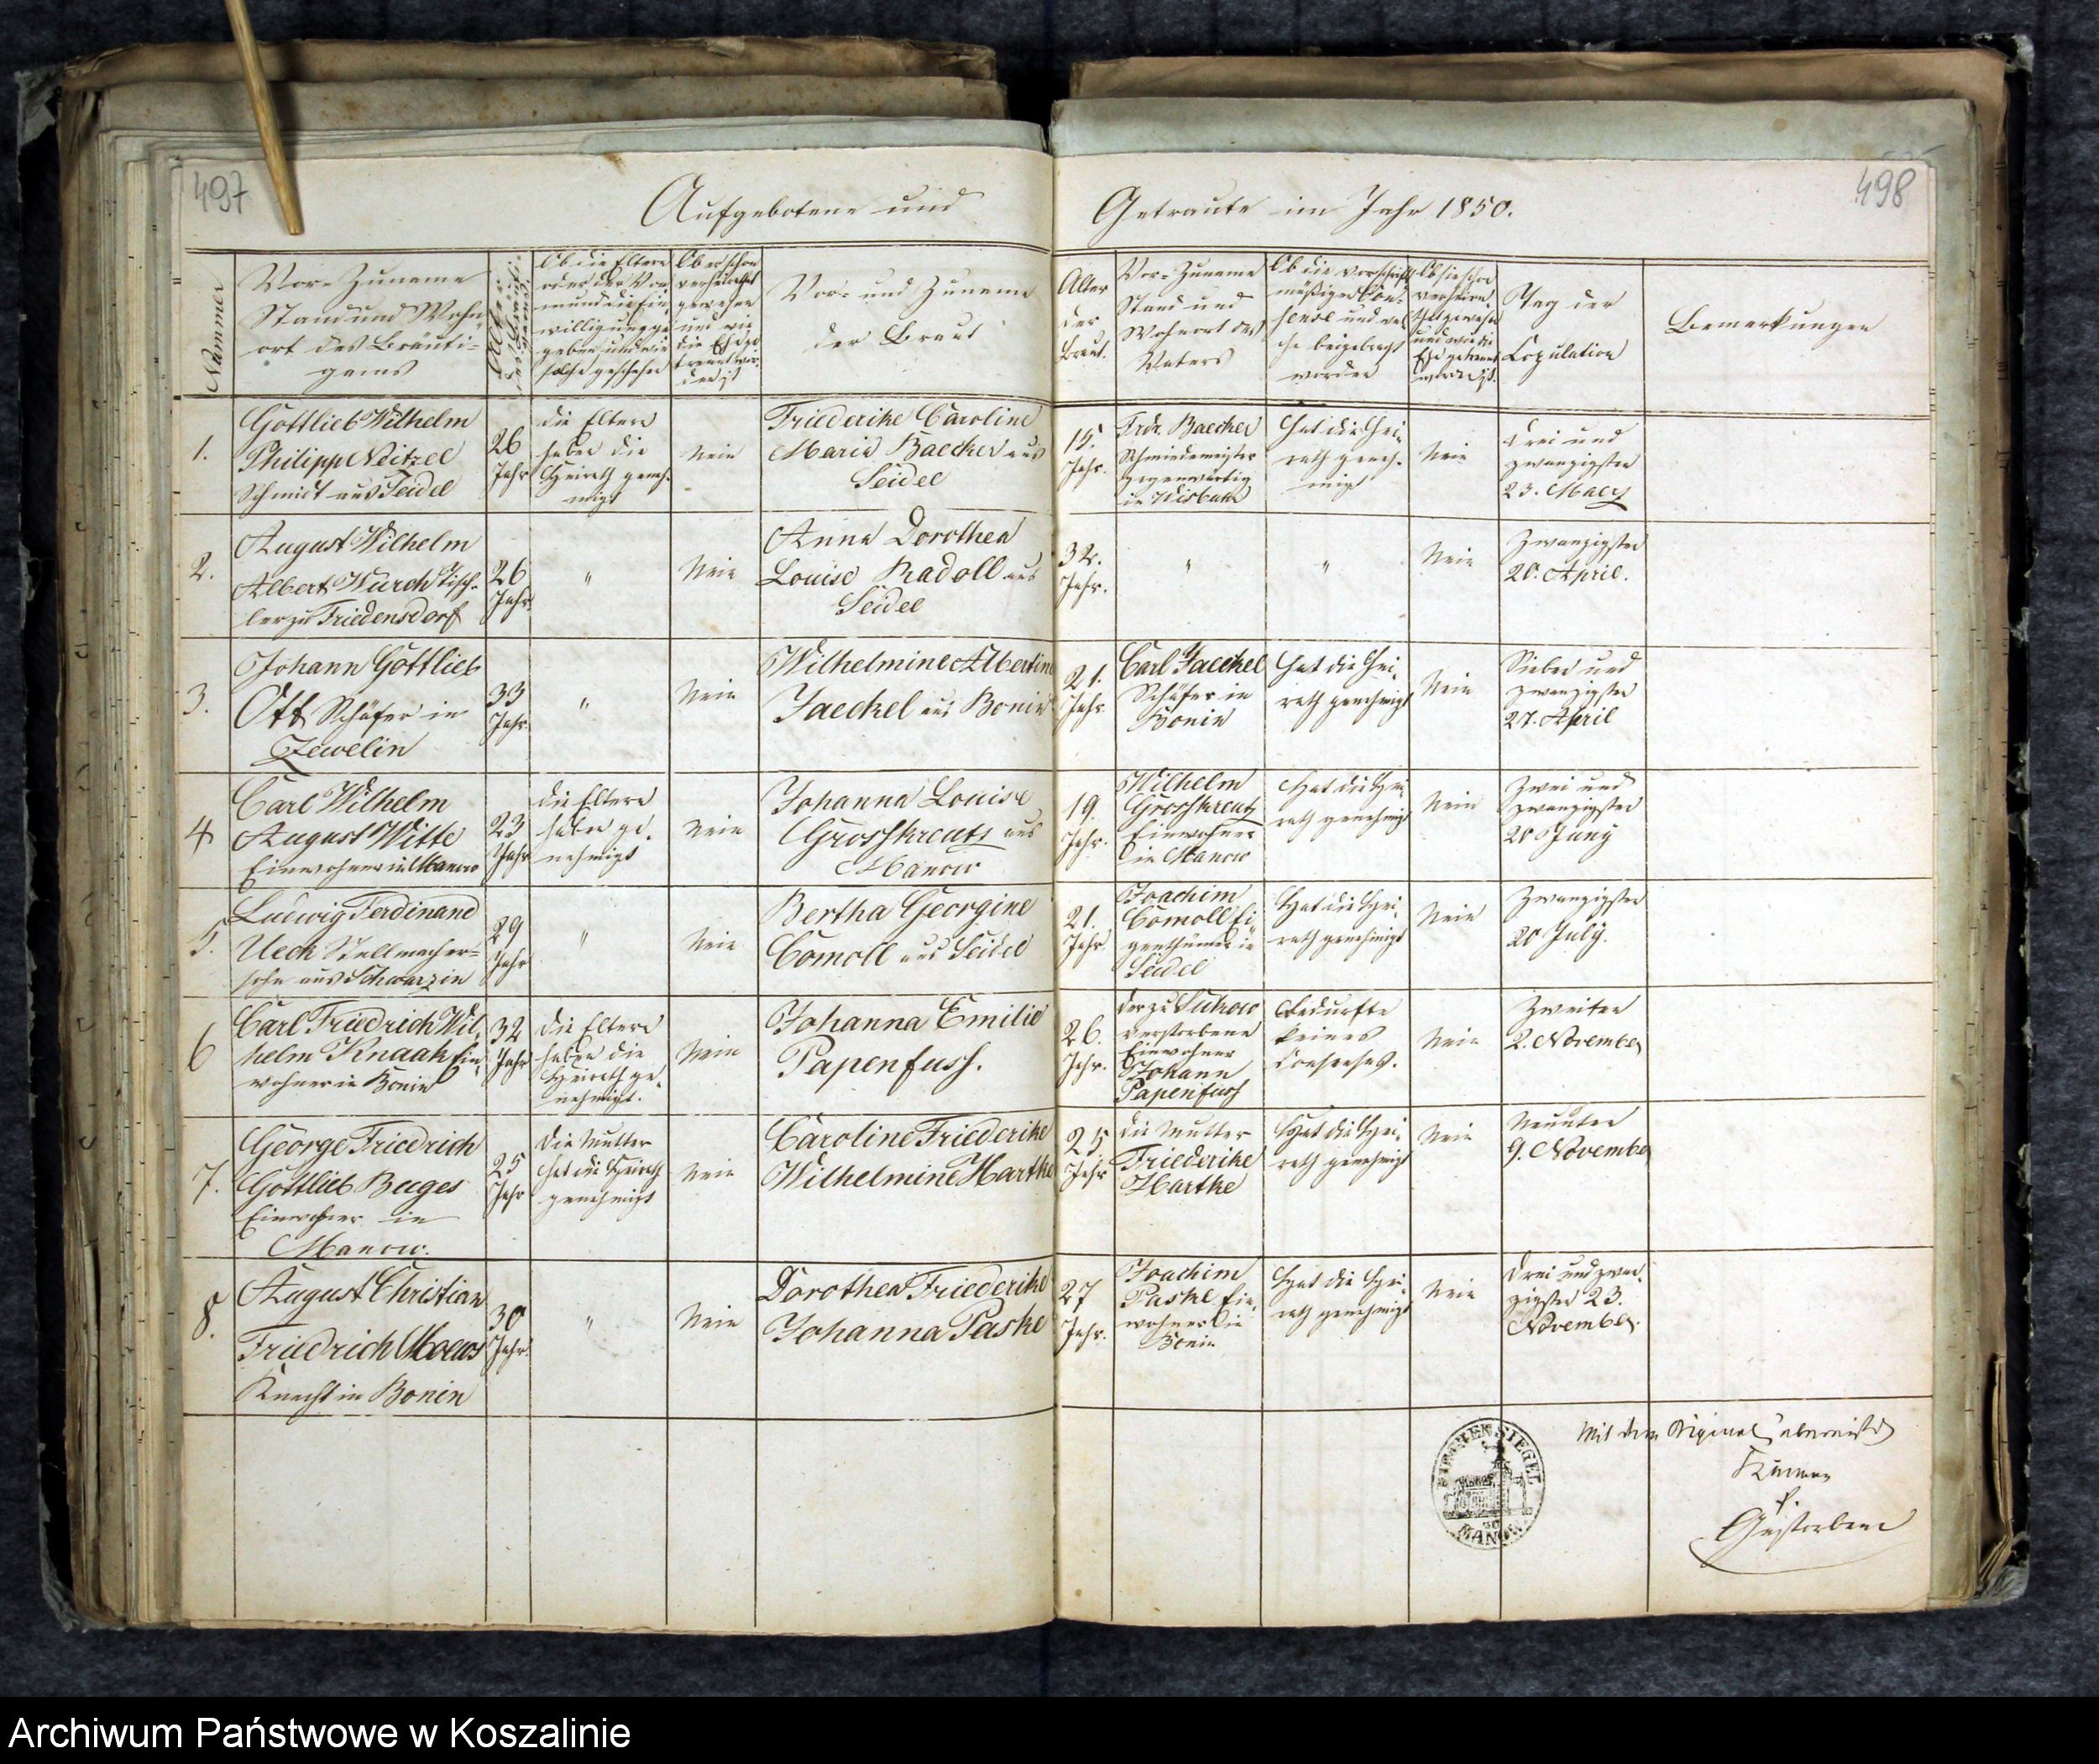 497
Aufgebotene und
Getraute im Jahr 1850.
498
Nummer
Vor- Zuname
Stand und Wohn-
ort des Bräuti-
gams
Alter
des Bräuti-
gams
Ob die Eltern
oder der Vor-
mund die Ein-
willigung ge-
geben und wie
solche geschehen
Ob er schon
verheirathet
gewesen
und wie
die Ehe ge-
trennt wor-
den ist
Vor- und Zuname
der Braut
Alter
der
Braut.
Vor- Zuname
Stand und
Wohnort des
Vaters
Ob die vorschrift-
mäßigen Con-
sense und wel-
che beigebracht
worden
Ob sie schon
verheira-
thet gewesen
und wie die
Ehe getrennt
worden ist.
Tag der
Copulation
Bemerkungen
1.
Gottlieb Wilhelm
Philipp Neitzel
Schmidt aus Seidel
26
Jahr
die Eltern
haben die
Heirath geneh-
migt
Nein
Friederike Caroline
Marie Baecker aus
Seidel
15.
Jahr.
Frdr. Baecker
Schmiedemeister
gegenwärtig
in Wisbuhr
Hat die Hei-
rath geneh-
migt
Nein
Drei und
zwanzigsten
23. Maey
2.
August Wilhelm
Albert Wurch Tisch-
ler zu Friedensdorf
26
Jahr.
"
Nein
Anna Dorothea
Louise Radoll aus
Seidel
32.
Jahr.
"
"
Nein
Zwanzigsten
20. April.
3.
Johann Gottlieb
Ott Schäfer in
Zewelin
33
Jahr.
"
Nein
Wilhelmine Albertine
Jaeckel aus Bonin
21.
Jahr
Carl Jaeckel
Schäfer in
Bonin
Hat die Hei-
rath genehmigt
Nein
Sieben und
zwanzigsten
27. April
4
Carl Wilhelm
August Witte
Einwohner in Manow
23
Jahr
die Eltern
haben ge-
nehmigt
Nein
Johanna Louise
Grosskreutz aus
Manow
19.
Jahr.
Wilhelm
Grosskreutz
Einwohner
in Manow
Hat die Hei-
rath genehmigt
Nein
Zwei und
zwanzigsten
Juny
5.
Ludwig Ferdinand
Ueck Stellmacher-
sohn aus Schwarzin
29
Jahr
"
Nein
Bertha Georgine
Comoll aus Seidel
21.
Jahr
Joachim
Comoll Ei-
genthümer in
Seidel
Hat die Hei-
rath genehmigt
Nein
Zwanzigsten
20 July.
6
Carl Friedrich Wil-
helm Knaak Ein-
wohner in Bonin
32
Jahr
die Eltern
haben die
Heirath ge-
nehmigt.
Nein
Johanna Emilie
Papenfuss.
26.
Jahr.
der zu Suckow
verstorbene
Einwohner
Johann
Papenfuss
Bedurfte
keines
Consenses.
Nein
Zweiten
2. November
7.
George Friedrich
Gottlieb Buges
Einwohner in
Manow.
25
Jahr
Die Mutter
hat die Heirath
genehmigt
Nein
Caroline Friederike
Wilhelmine Harthe
25
Jahr
die Mutter
Friederike
Harthe
Hat die Hei-
rath genehmigt
Nein
Neunten
9. November
8.
August Christian
Friedrich Moews
Knecht in Bonin
30
Jahr.
"
Nein
Dorothea Friederike
Johanna Paske
27
Jahr.
Joachim
Paske Ein-
wohner in
Bonin
Hat die Hei-
rath genehmigt
Nein
Drei und zwan-
zigsten 23.
November
KIRCHEN SIEGEL
ZU
MANOW
Mit dem Original
Gestorbene
Archiwum Państwowe w Koszalinie